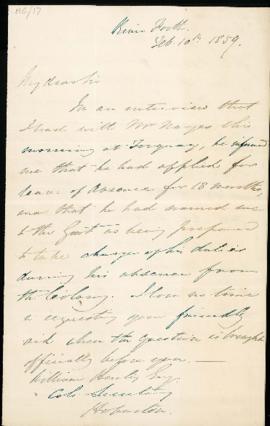 MG/17
River Forth
Feb. 10th 1859.
My dear Sir
In an interview that
I had with Mr Noyes this
morning at Torquay, he informed
me that he had applied for
leave of Absence for 18 months,
and that he had named me
to the Govt as being prepared
to take charge of his duties
during his absence from
the Colony. I lose no time
in requesting your friendly
aid when the question is brought
officially before you —
William Henty Esq.
Col. Secretary
Hobarton.